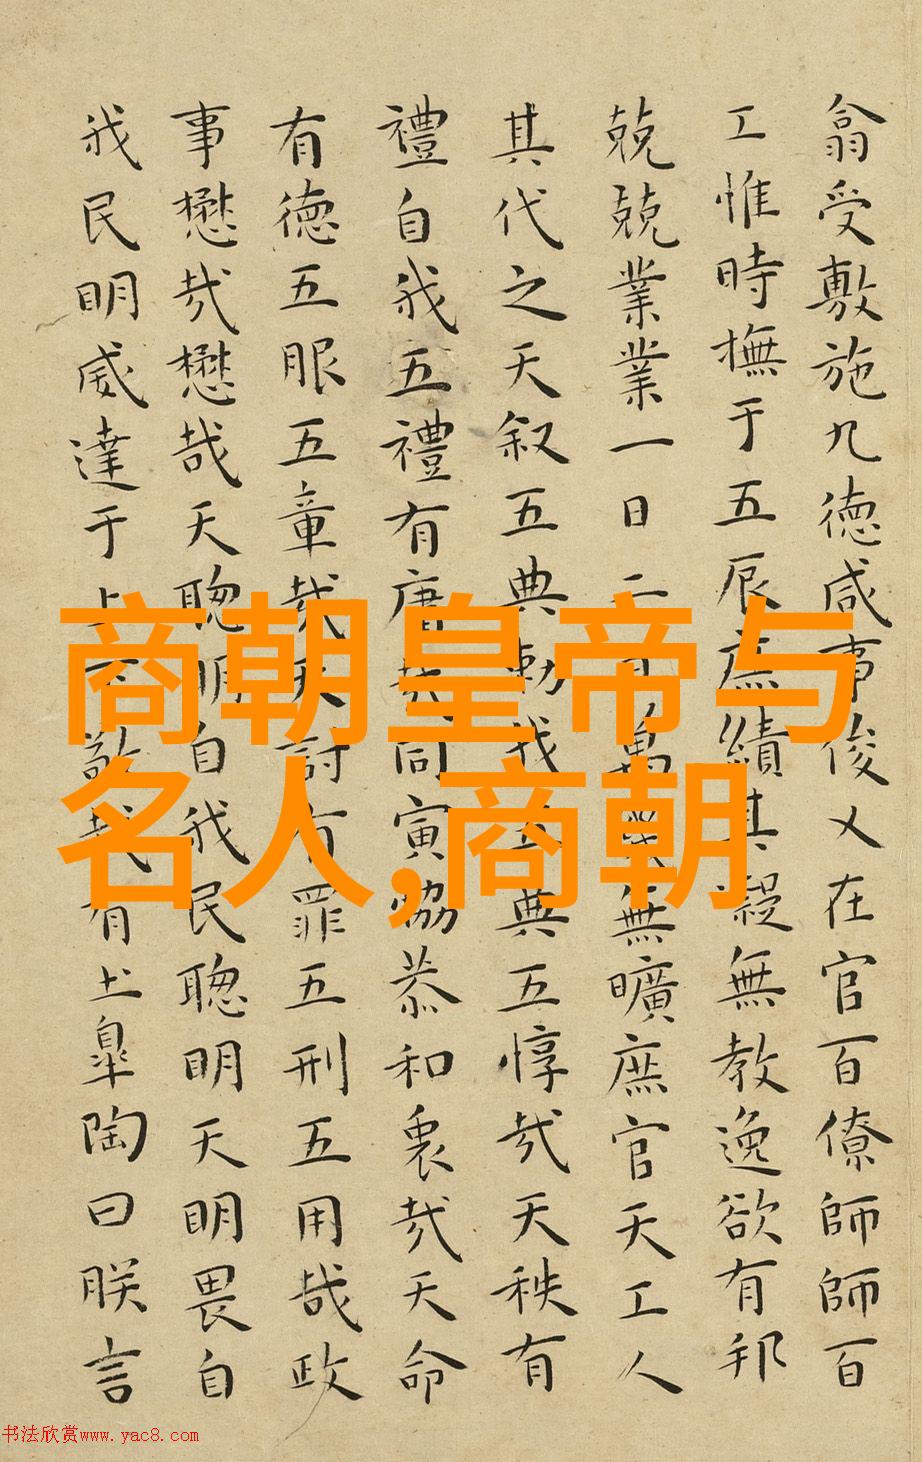 翕受敷施九德咸事俊乂在官百僚師師百
工惟時撫于五辰庶績其凝無教逸欲有邦
兢兢業業一日二日萬幾無曠庶官天工人
其代之天叙五典勅我五典五惇哉天秩有
禮自我五禮有庸哉同寅協恭和衷哉天命
有德五服五章哉天討有罪五刑五用哉政
事懋哉懋哉天聰明自我民聰明天明畏自
我民明威達于上下敬哉有土皋陶曰朕言
商朝皇帝与
名人,商朝
书法欣赏www.yac8.com